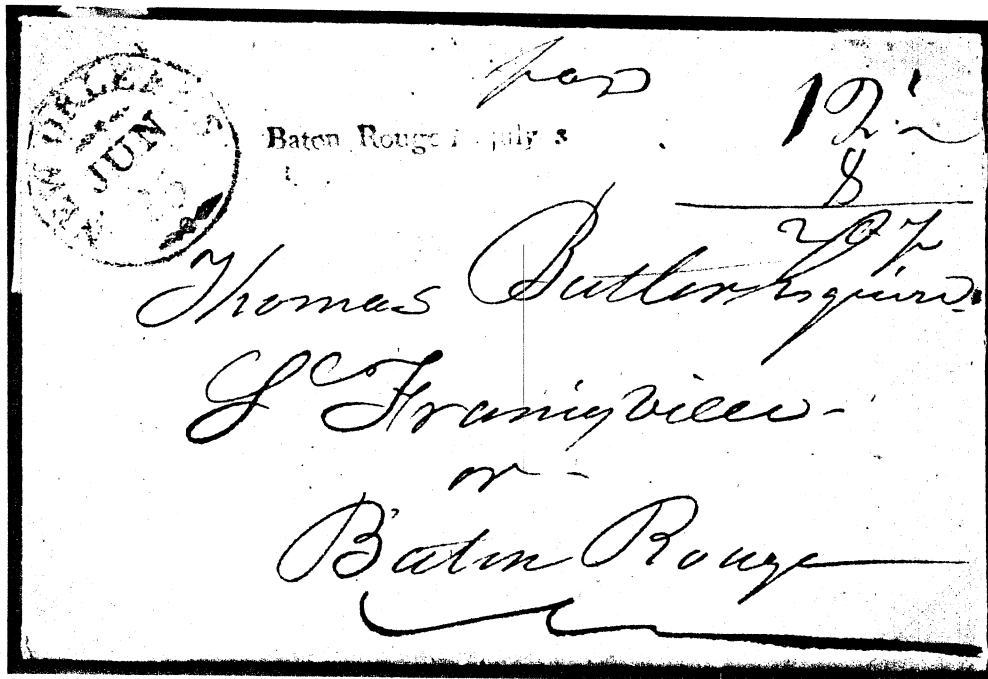 NEW ORLEANS
JUN
Baton Rouge July 3
12½
8
20½
Thomas Butler Esquire.
St Francisville -
or -
Baton Rouge